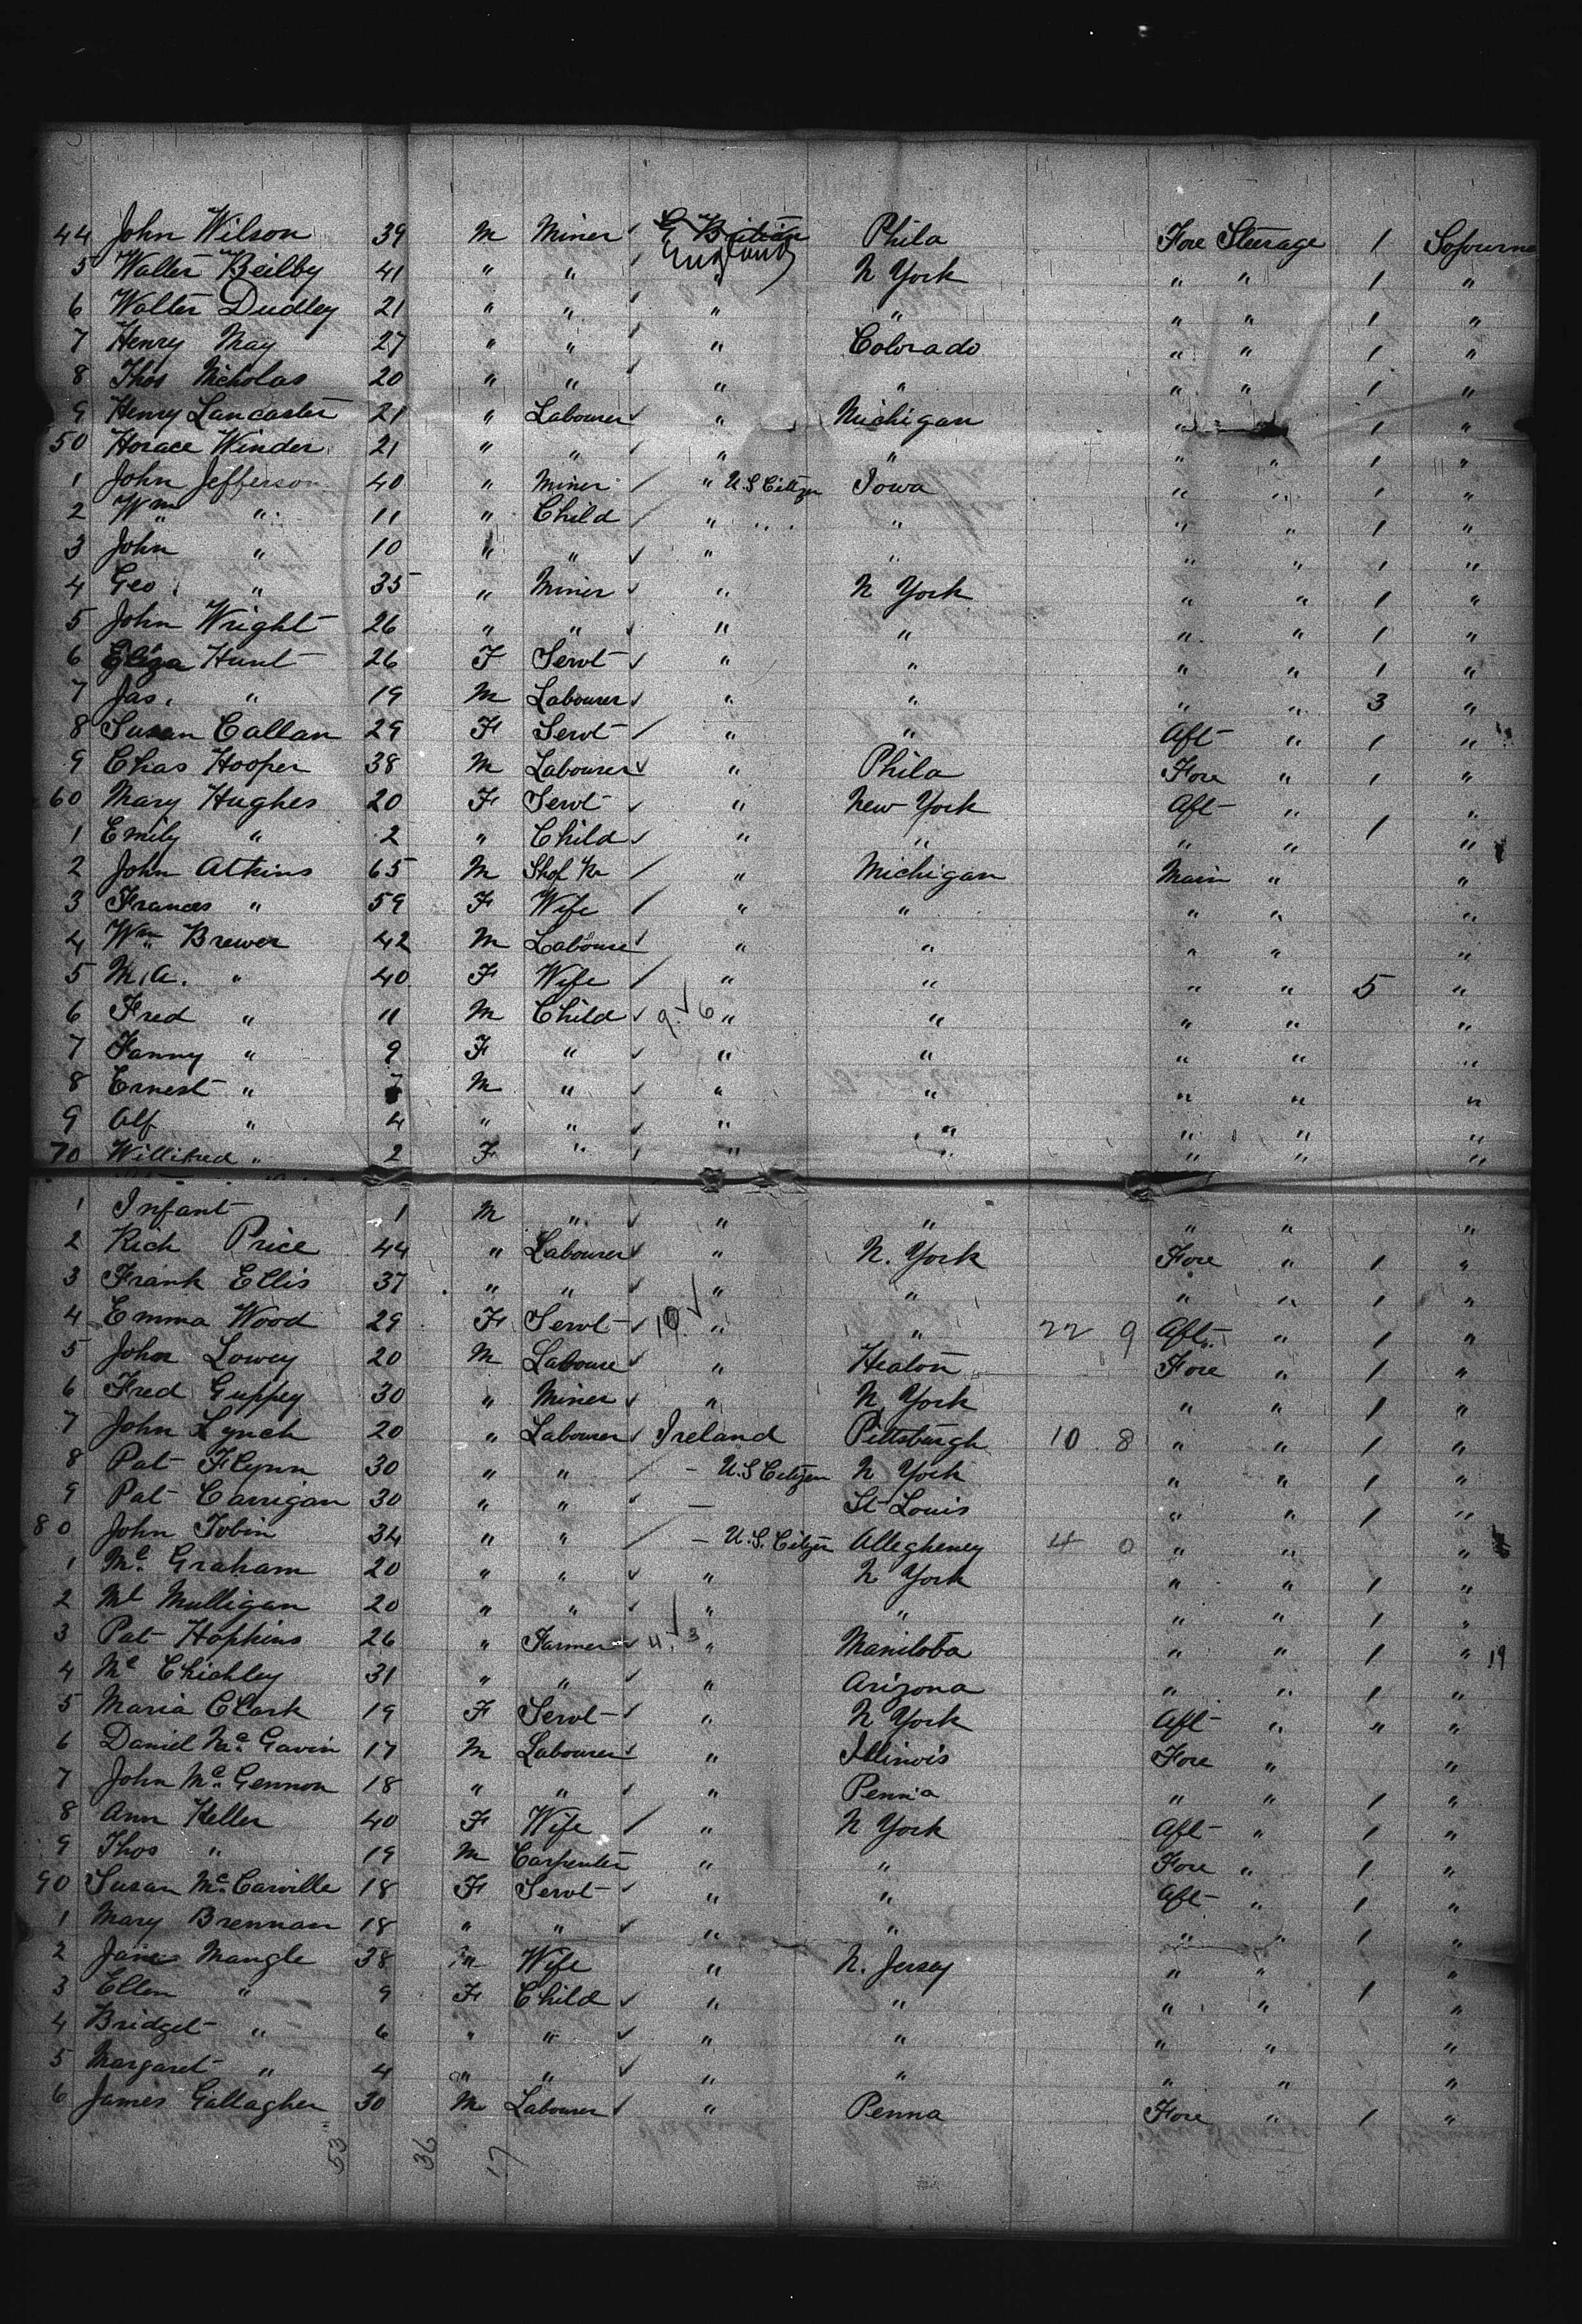 44 John Wilson 39 M Miner ✓ G Britain England Phila Fore Steerage 1 Sojourne
5 Walter Beilby 41 " " ✓ " N York " " 1 "
6 Walter Dudley 21 " " ✓ " " " " 1 "
7 Henry May 27 " " ✓ " Colorado " " 1 "
8 Thos Nicholas 20 " " ✓ " " " " 1 "
9 Henry Lancaster 21 " Labourer ✓ " Michigan " 1 "
50 Horace Winder 21 " " ✓ " " " " 1 "
1 John Jefferson 40 " Miner / " U S Citizen Iowa " " 1 "
2 Wm " 11 " Child / " " " " " 1 "
3 John " 10 " " ✓ " " " " 1 "
4 Geo " 35 " Miner ✓ " N York " " 1 "
5 John Wright 26 " " ✓ " " " " 1 "
6 Eliza Hunt 26 F Servt ✓ " " " " 1 "
7 Jas. " 19 M Labourer ✓ " " " " 3 "
8 Susan Callan 29 F Servt / " " Aft " 1 "
9 Chas Hooper 38 M Labourer ✓ " Phila Fore " 1 "
60 Mary Hughes 20 F Servt ✓ " New York Aft " "
1 Emily " 2 " Child ✓ " " " " 1 "
2 John Atkins 65 M Shop Kr / " Michigan Main " "
3 Frances " 59 F Wife / " " " " "
4 Wm Brewer 42 M Laboure ✓ " " " " "
5 M.A. " 40 F Wife / " " " " 5 "
6 Fred " 11 M Child ✓ 9 ✓ 6 " " " " "
7 Fanny " 9 F " ✓ " " " " "
8 Ernest " 7 M " ✓ " " " " "
9 Alf " 4 " " ✓ " " " " "
70 Willifred " 2 F " ✓ " " " " "
1 Infant 1 M " ✓ " " " " "
2 Rich Price 44 " Labourer ✓ " N. York Fore " 1 "
3 Frank Ellis 37 " " ✓ " " " " 1 "
4 Emma Wood 29 F Servt ✓ 10 ✓ " " 22 9 Aft " 1 "
5 John Lowey 20 M Laboure ✓ " Heaton Fore " 1 "
6 Fred Guppey 30 " Miner ✓ " N York " " 1 "
7 John Lynch 20 " Labourer ✓ Ireland Pittsburgh 10 8 " " 1 "
8 Pat Flynn 30 " " / - U.S Citizen N York " " 1 "
9 Pat Carrigan 30 " " ✓ - St Louis " " 1 "
80 John Tobin 34 " " / - U.S. Citizn Allegheney 4 0 " " "
1 Mc Graham 20 " " ✓ " N York " " 1 "
2 Ml Mulligan 20 " " ✓ " " " " 1 "
3 Pat Hopkins 26 " Farmer ✓ 4 ✓ 3 " Manitoba " " 1 " 19
4 Mc Chichley 31 " " ✓ " Arizona " " 1 "
5 Maria Clark 19 F Servt ✓ " N York Aft " " "
6 Daniel Mc Gavin 17 M Labourer ✓ " Illinois Fore " "
7 John Mc Gennon 18 " " ✓ " Penn'a " " 1 "
8 Ann Keller 40 F Wife / " N York Aft " 1 "
9 Thos " 19 M Carpenter " " Fore " 1 "
90 Susan McCarville 18 F Servt ✓ " " Aft " 1 "
1 Mary Brennan 18 " " ✓ " " " " 1 "
2 Jane Mangle 38 m Wife " N. Jersey " " "
3 Ellen " 9 F Child ✓ " " " " 1 "
4 Bridget " 6 " " ✓ " " " " "
5 Margaret " 4 " " ✓ " " " " "
6 James Gallagher 30 M Labourer ✓ " Penna Fore " 1 "
53 36 17